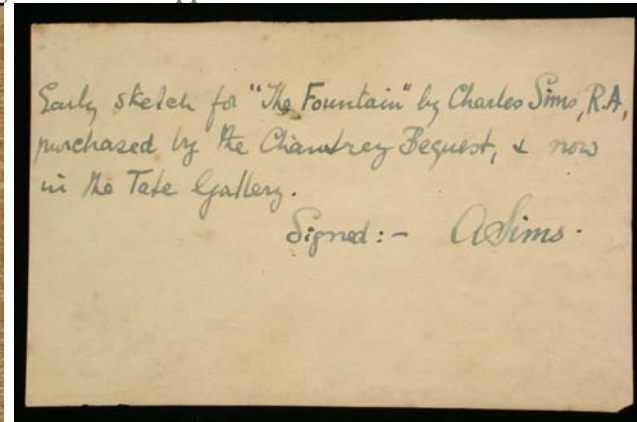 Early sketch for "The Fountain" by Charles Sims, R.A,
purchased by the Chantrey Bequest, & now
in the Tate Gallery.
Signed :- ASims.